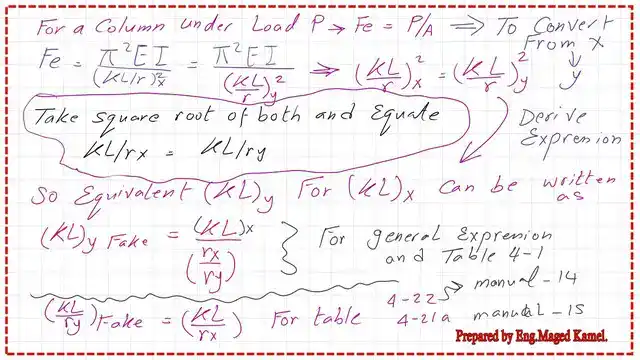 For a Column under Load P → Fe = P/A ⇒ To Convert
From x
↓
y
Fe = π²EI/(KL/r)²x = π²EI/(KL/r)²y ⇒ (KL/r)²x = (KL/r)²y
Take square root of both and Equate
KL/rx = KL/ry
Derive
Exprenion
So Equivalent (KL)y For (KL)x can be written
as
(KL)y Fake = (KL)x/(rx/ry) } For general Exprenion
and Table 4-1
(KL/ry)Fake = (KL/rx) For table 4-22 → manual-14
4-21a manual-15
Prepared by Eng.Maged Kamel.